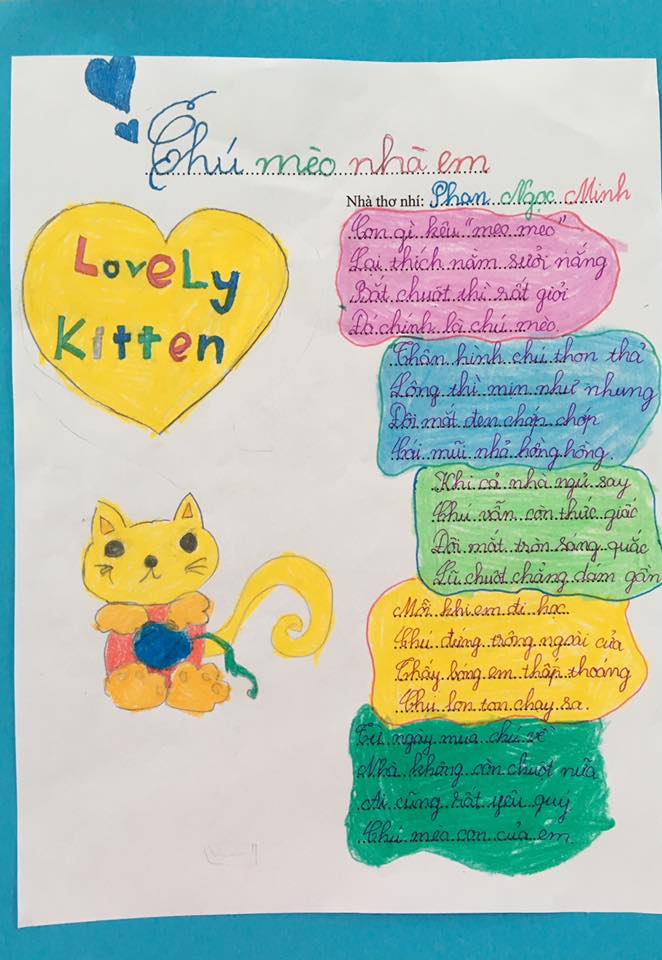 Chú mèo nhà em
Nhà thơ nhí: Phan Ngọc Minh
Lovely
Kitten
Con gì kêu "meo meo"
Lại thích nằm sưởi nắng
Bắt chuột thì rất giỏi
Đó chính là chú mèo.
Thân hình chú thon thả
Lông thì mịn như nhung
Đôi mắt đen chớp chớp
Cái mũi nhỏ hồng hồng.
Khi cả nhà ngủ say
Chú vẫn còn thức giấc
Đôi mắt tròn sáng quắc
Lũ chuột chẳng dám gần
Mỗi khi em đi học
Chú đứng trông ngoài cửa
Thấy bóng em thấp thoáng
Chú lon ton chạy ra.
Từ ngày mua chú về
Nhà không còn chuột nữa
Ai cũng rất yêu quý
Chú mèo con của em